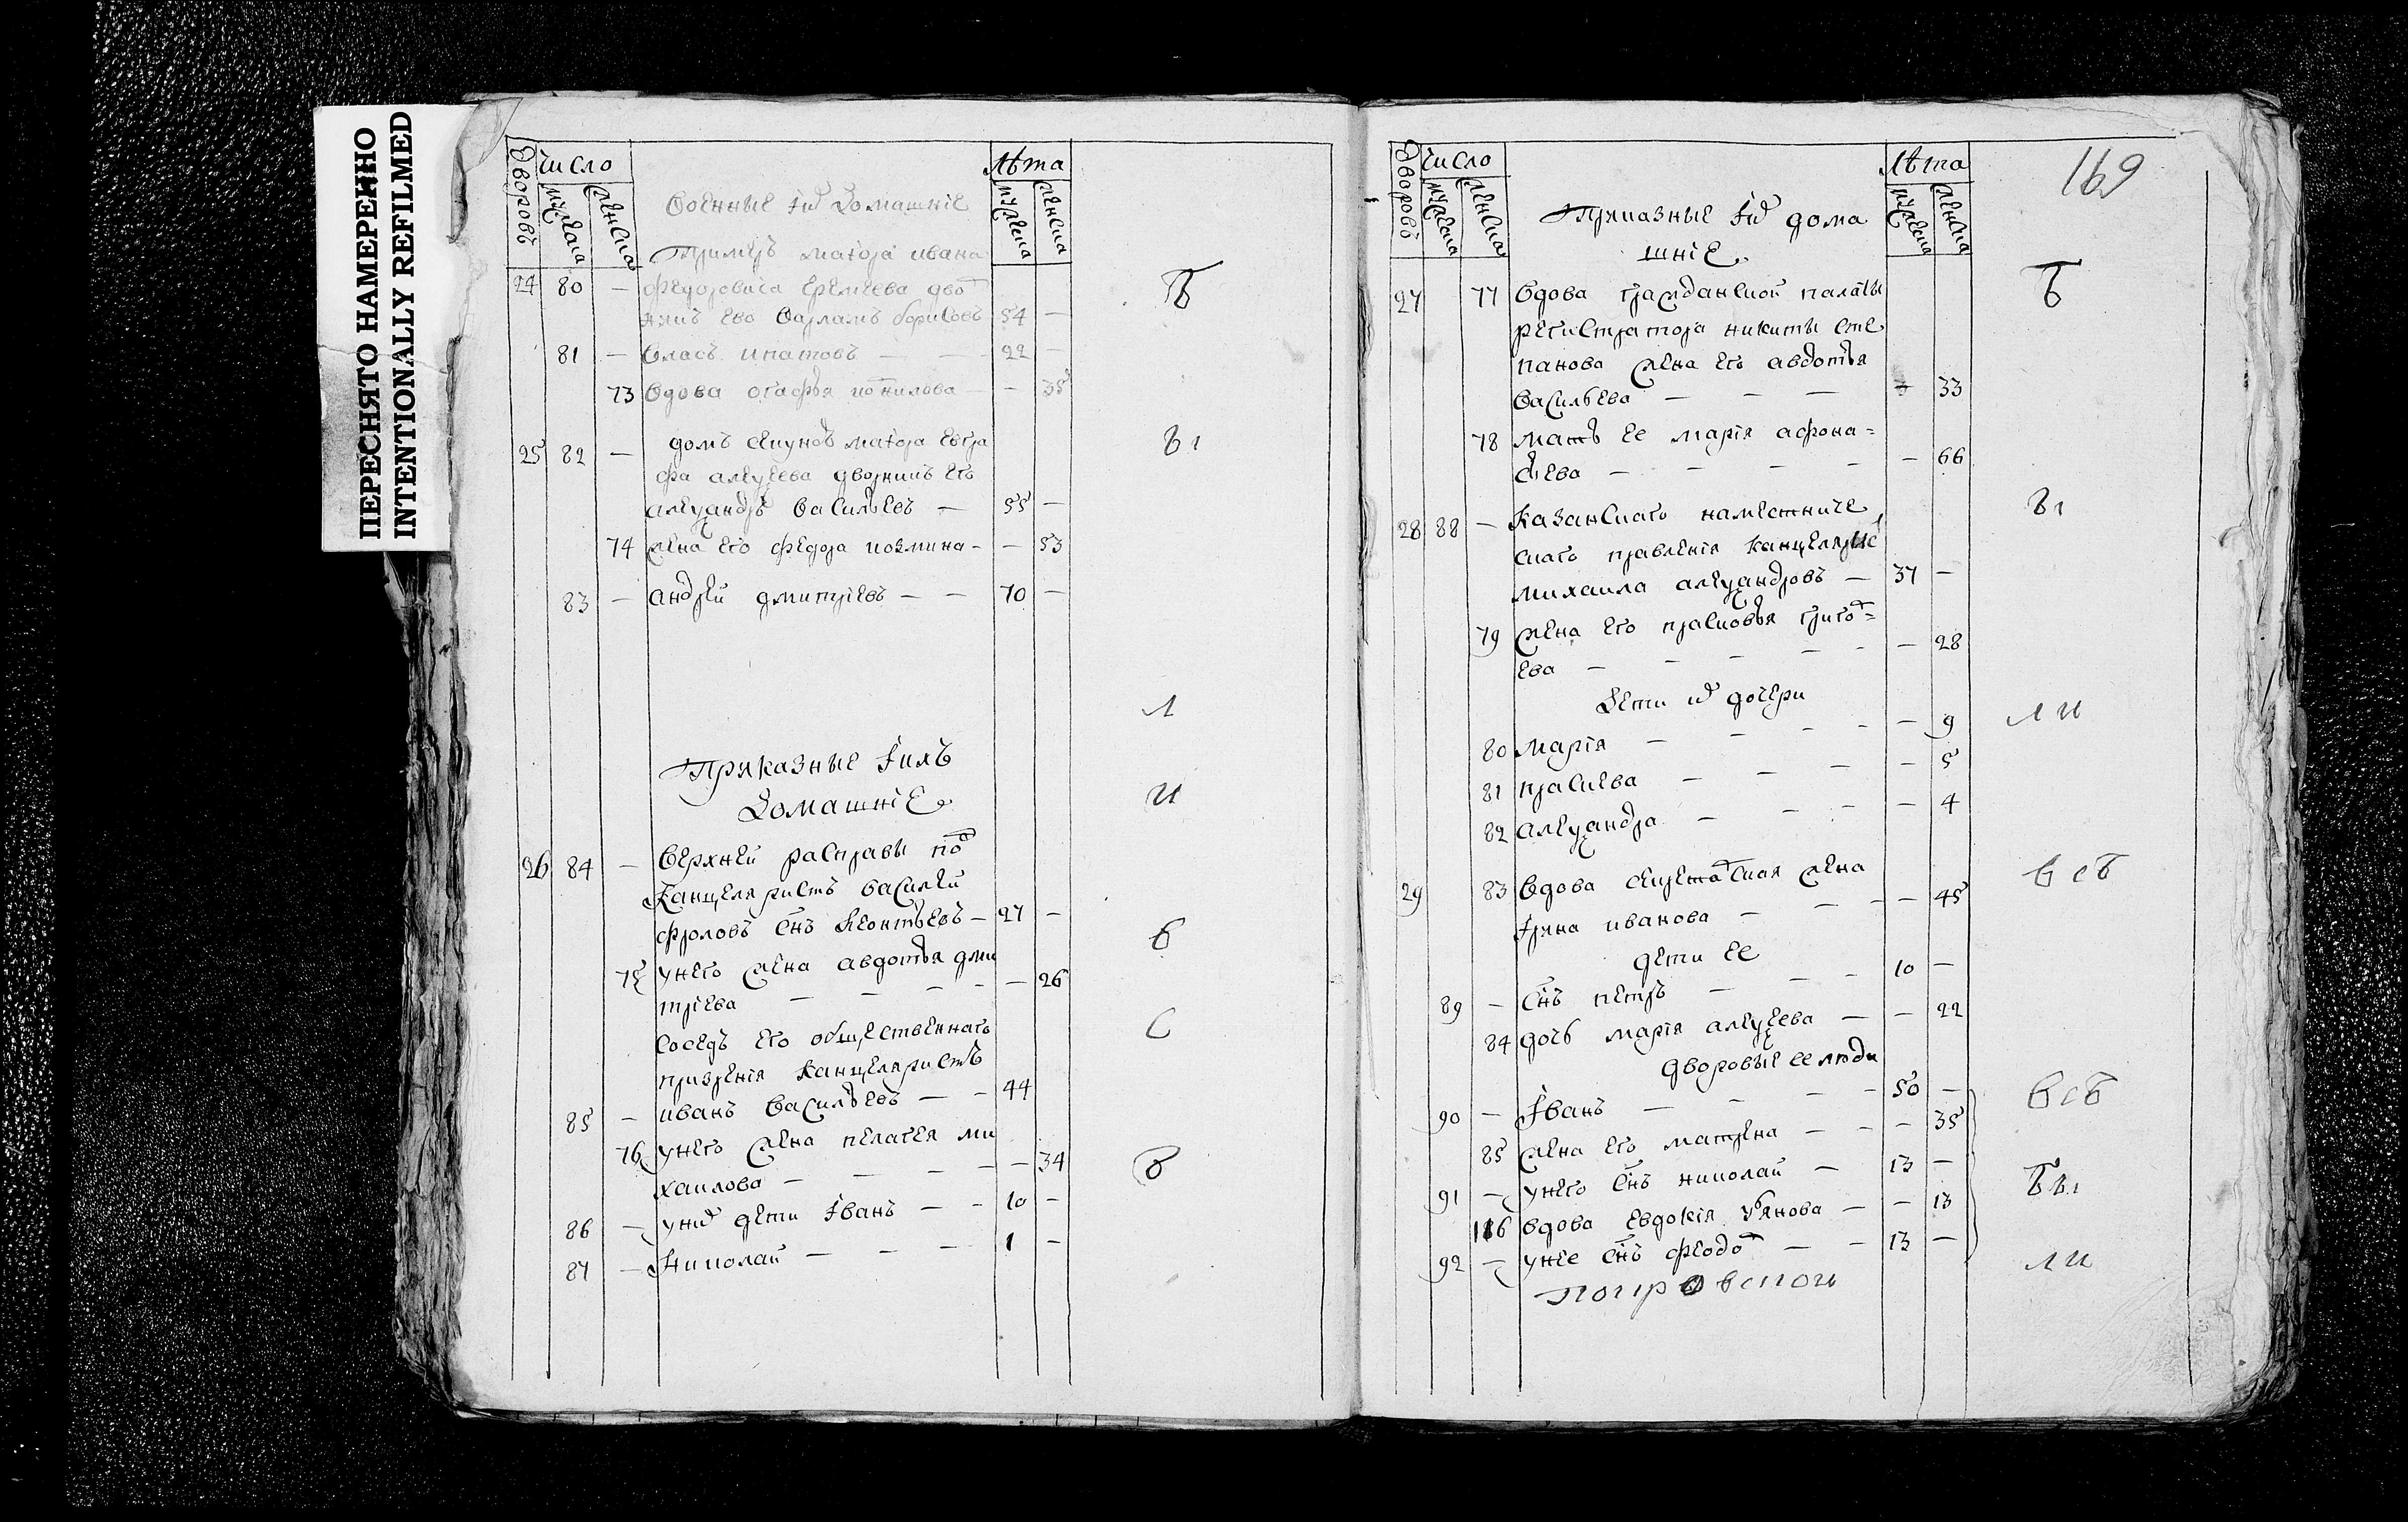 ПЕРЕСНЯТО НАМЕРЕННО
INTENTIONALLY REFILMED
Дворовъ
Число
мужеска
женска
Лѣта
мужеска
женска
Военные їих Домашнїе
Примеръ маїора ивана
24 80 — Федоровича Еремеева дво
рник ево Варламъ борисовъ 54 —
81 — Власъ ипатовъ — — 22 —
73 Вдова огафья — — 35
25 82 — домъ секунд маїора евгра
фа алеѯеева дворник его
алеѯандръ Васильевъ — 55 —
74 жена его федора козмина - — 53
83 — андрей дмитрїевъ — — 70 —
Приказные їихъ
Домашнїе
26 84 — Верхней расправы под
канцеляристъ василей
фроловъ снъ Леонтьевъ — 27 —
75 унего жена авдотья дми
трїева — — — — — 26
соседъ его общественнаго
призренїя канцеляристъ
85 — иванъ Васильевъ — — 44
76 унего жена пелагея ми
хаилова — — — — — 34
86 — уних дети Їванъ — — 10 —
87 — Николай — — — 1 —
Б
вı
Л
И
в
С
В
169
Дворовъ
Число
мужеска
женска
Лѣта
мужеска
женска
Приказные їих дома
шнїе
27 77 Вдова гражданской палаты
регистратора никиты сте
панова жена его авдотья
Васильева — — — 33
78 мать ее марїя афона=
сьева — — — — — 66
28 88 — Казанскаго наместниче
скаго правленїя канцелярис
михаила алеѯандровъ — 37 —
79 жена его прасковья григор=
ева — — — — — — 28
Дети их дочери
80 марїя — — — — 9
81 прасковя — — — — 5
82 алеѯандра — — — — 4
29 83 Вдова секретарская жена
Їрина иванова — — — — 45
дети ее
89 — Снъ петръ — — — 10 —
84 дочь марїя алеѯеева — — 22
дворовые ее люди
90 — Їванъ — — — — 50 —
85 жена его матрена — — — 35
91 — унего снъ николай — 13 —
86 вдова евдокїя — — 13
92 — унее снъ феодор — — 13 —
покровской
Б
вı
ли
всб
всб
ли